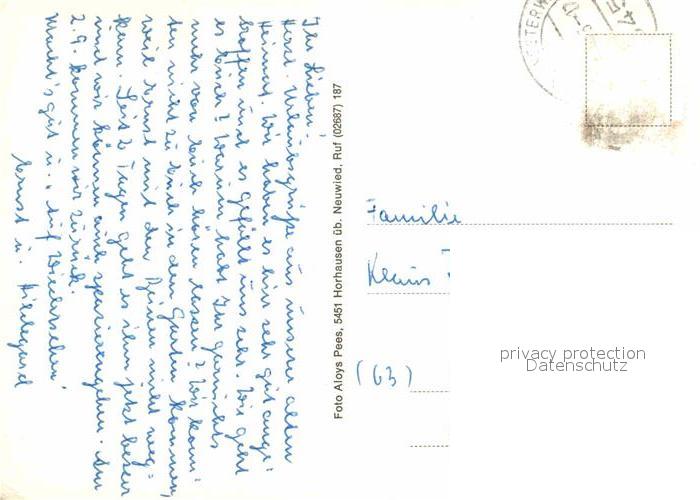 Ihr Lieben!
Herzl. Urlaubsgrüße aus unserer alten
Heimat. Wir haben es hier sehr gut ange-
troffen und es gefällt uns sehr. Wie geht
es Euch? Warum habt Ihr garnichts
mehr von Euch hören lassen? Wir konn-
ten nicht zu Euch in den Garten kommen,
weil Ernst mit den Beinen nicht weg-
kann. Seit 2 Tagen geht es ihm jetzt besser
und wir können wieder spazierengehen. Am
2.9. kommen wir zurück.
Macht's gut u. Auf Wiedersehen!
Ernst u. Hildegard
Foto Aloys Pees, 5451 Horhausen üb. Neuwied, Ruf (02687) 187
Familie
Klaus
(63)
privacy protection
Datenschutz